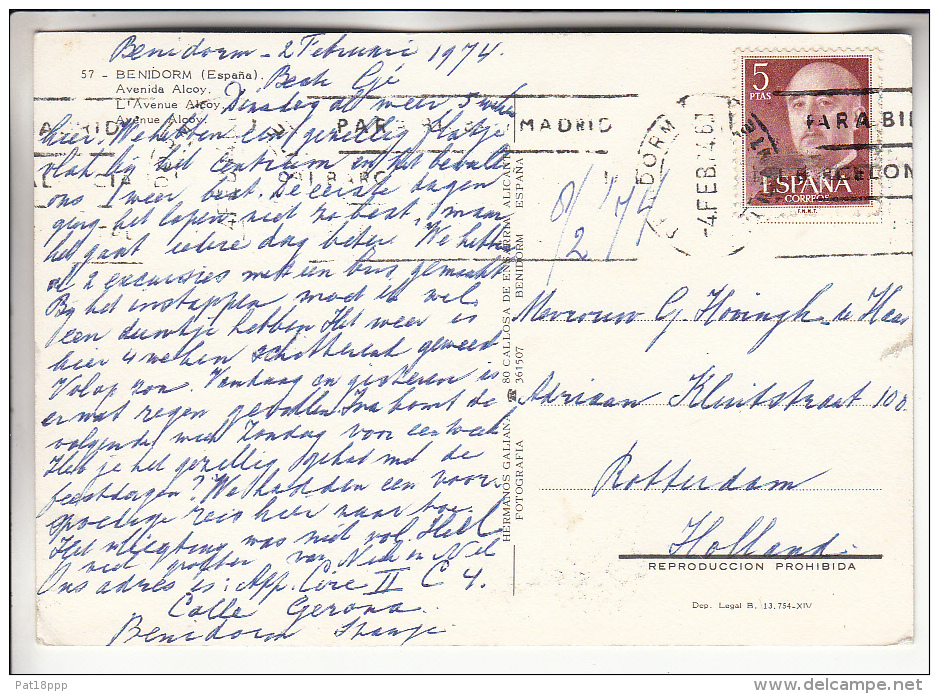 Benidorm - 2 Februari 1974.
57 - BENIDORM (España).
Avenida Alcoy.
L'Avenue Alcoy.
Avenue Alcoy.
Beste
Dinsdag al weer 5 weken
hier. We hebben een gezellig
vlak bij het centrum en het bevalt
ons weer best. De eerste dagen
ging het lopen niet zo best, maar
het gaat iedere dag beter. We hebben
al 2 excursies met een bus gemaakt
Bij het instappen moet ik wel
een duwtje hebben. Het weer is
hier 4 weken schitterend geweest
Volop zon. Vandaag en gisteren is
er wat regen gevallen. Ina komt de
volgende week Zondag voor een week
Heb je het gezellig gehad met de
feestdagen? We hadden een voor-
spoedige reis hier naar toe.
Het vliegtuig was niet vol. Heel
veel groeten van Niek en Nel
Ons adres is: App. Cire II C 4.
Calle Gerona
Benidorm Spanje
HERMANOS GALIANA ☎ 80 CALLOSA DE ENSARRIA ALICANTE
FOTOGRAFIA 361507 BENIDORM ESPAÑA
MADRID
PAR
BENIDORM
-4.FEB.74.
PARA BIE
5
PTAS
ESPAÑA
CORREOS
F.N.M.T.
8/2 '74
Mevrouw G Hovingh-de Haas
Adriaan Kluitstraat 108
Rotterdam
Holland.
REPRODUCCION PROHIBIDA
Dep. Legal B. 13.754-XIV
Pat18ppp